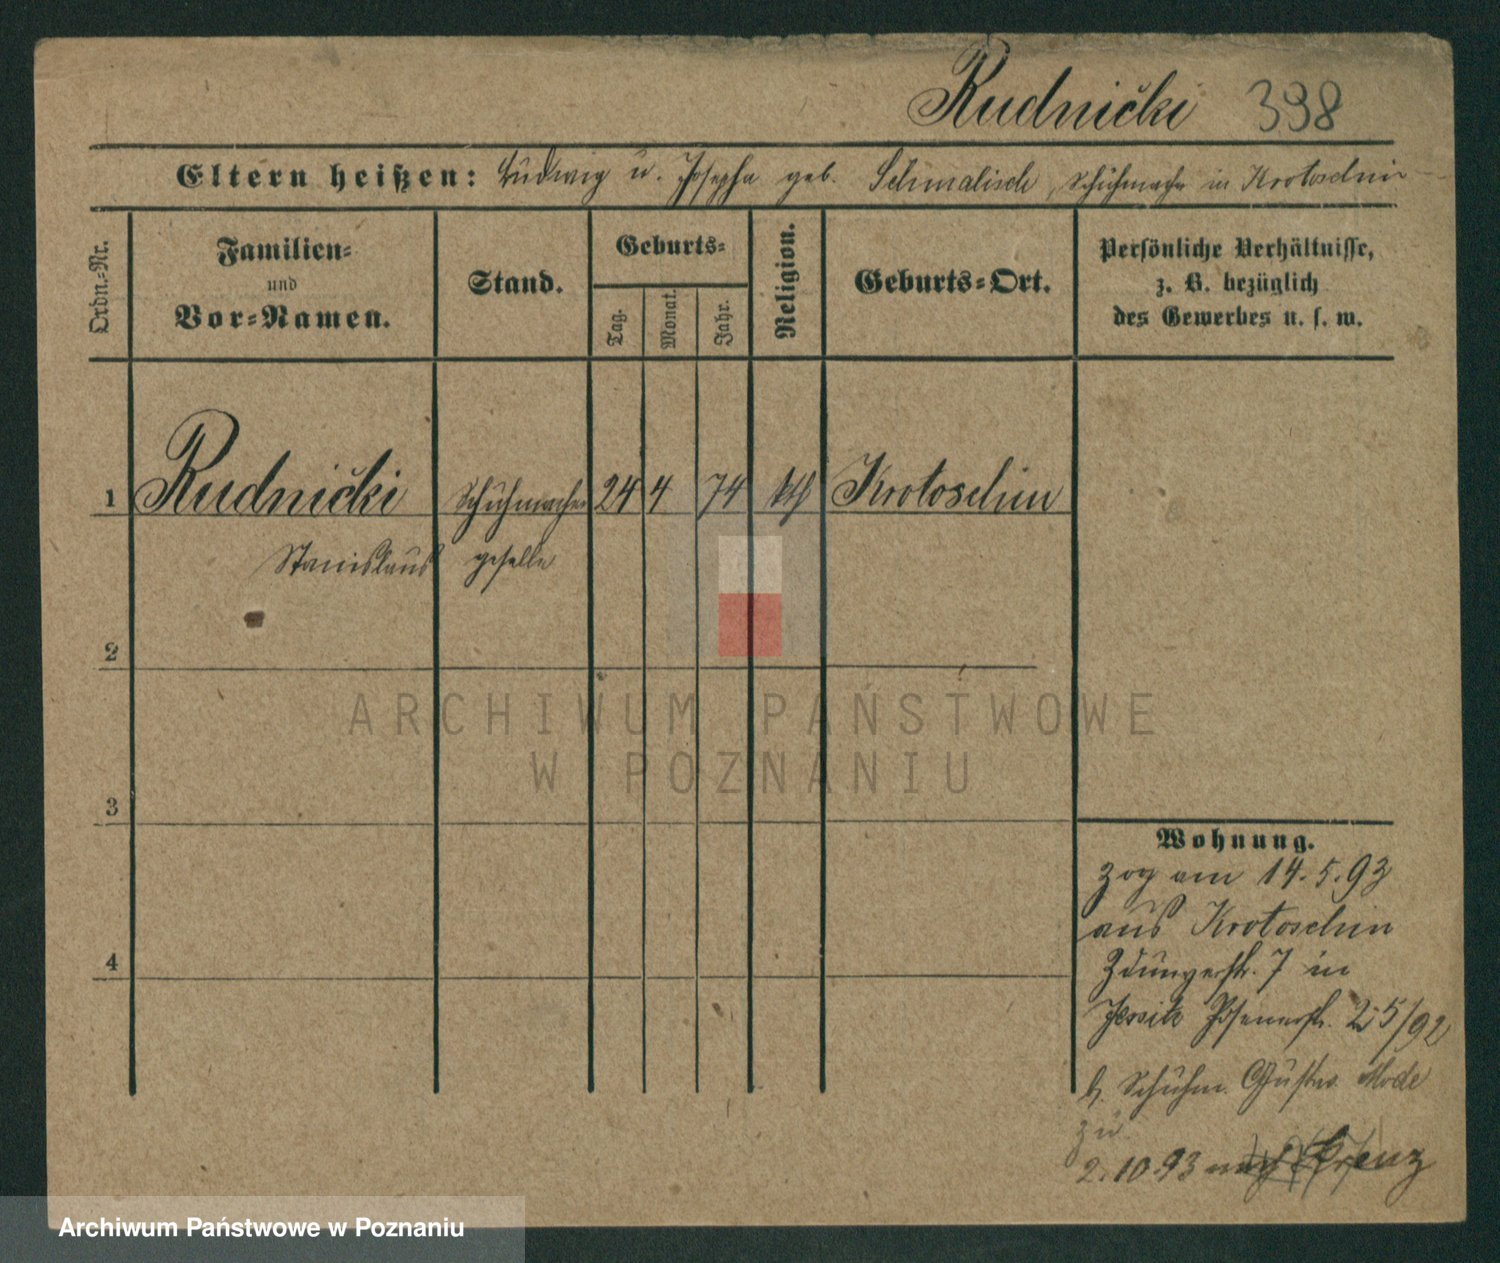 Rudnički 398
Eltern heißen: Ludwig u. Josepha geb. Schmalisch, Schuhmacher in Krotoschin
Ordn.-Nr.
Familien-
und
Vor-Namen.
Stand.
Geburts-
Tag.
Monat.
Jahr.
Religion.
Geburts-Ort.
Persönliche Verhältnisse,
z. B. bezüglich
des Gewerbes u. s. w.
1 Rudnički Schuhmacher 24 4 74 kth Krotoschin
Stanislaus geselle
2
3
4
Wohnung.
zog am 14.5.93
aus Krotoschin
Zdunyerstr. 7 in
Jersitz Posenerstr. 25/92
b. Schuhm. Gustav Mode
zu
2.10.93 nach Kreuz
ARCHIWUM PAŃSTWOWE
W POZNANIU
Archiwum Państwowe w Poznaniu